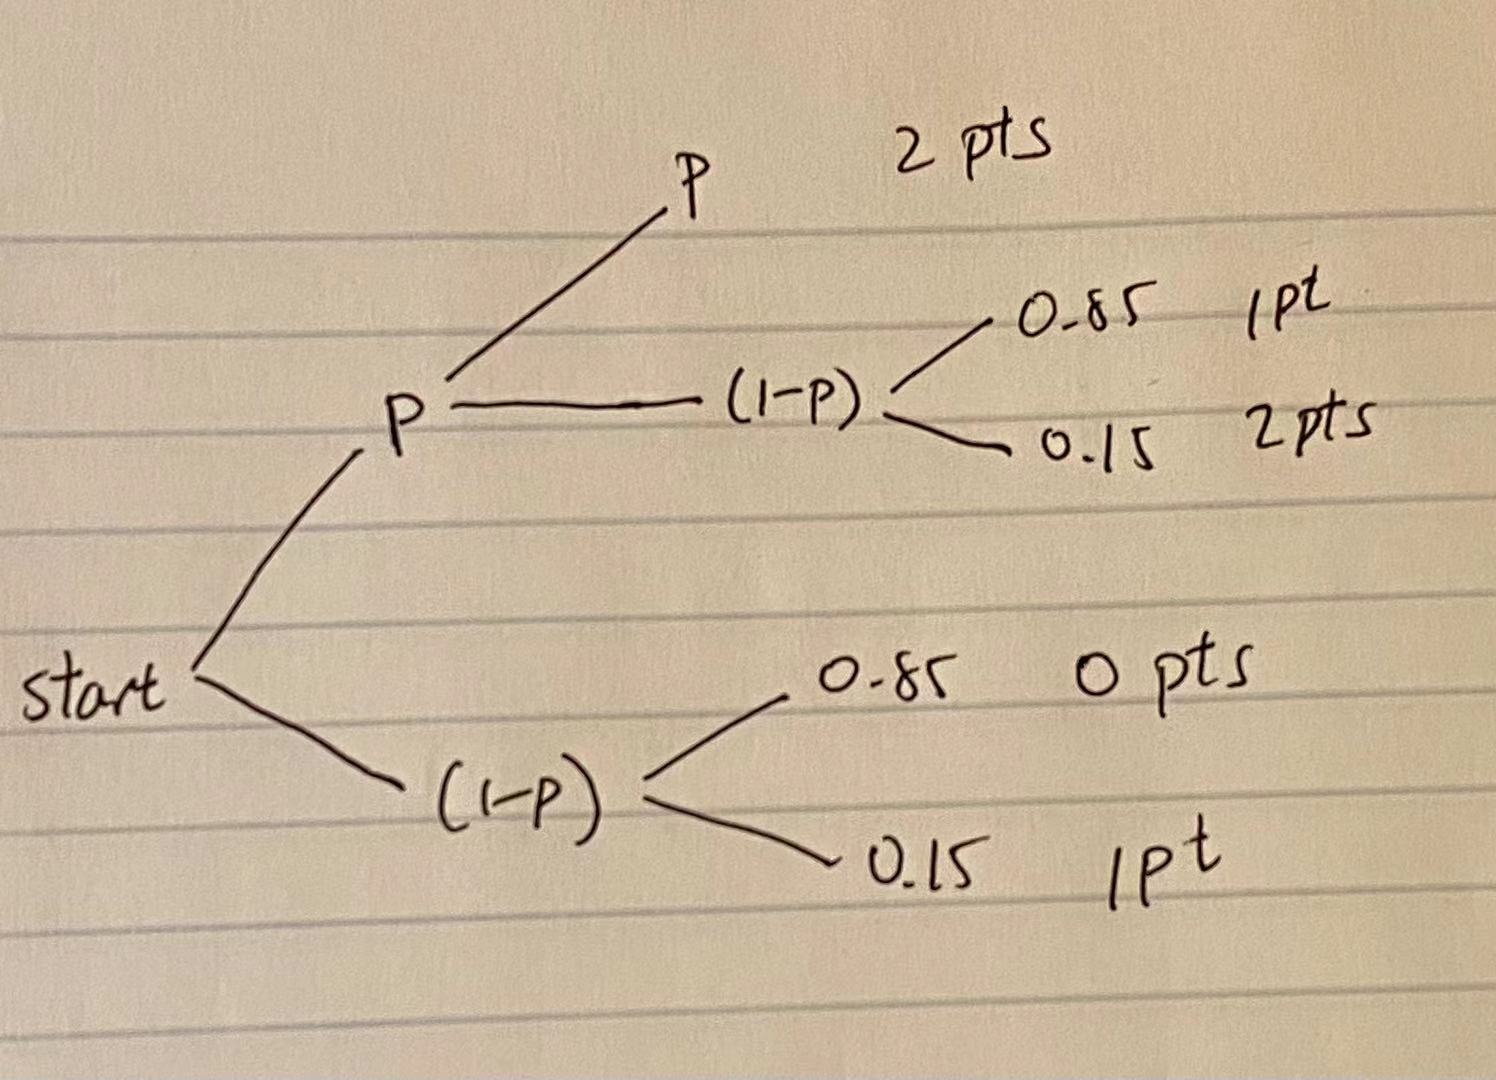 P 2 pts
0.85 1pt
P (1-P)
0.15 2pts
start
0.85 0 pts
(1-P)
0.15 1pt